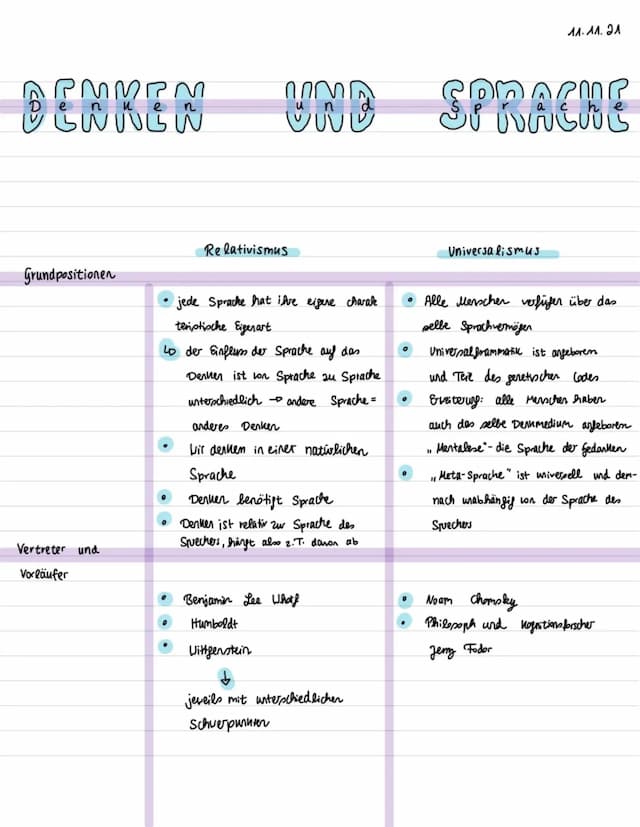 11.11.21
DENKEN UND SPRACHE
Denken und Sprache
Relativismus
Universalismus
Grundpositionen
• jede Sprache hat ihre eigene charak
teristische Eigenart
↳ der Einfluss der Sprache auf das
Denken ist von Sprache zu Sprache
unterschiedlich → andere Sprache =
anderes Denken
• Wir denken in einer natürlichen
Sprache
• Denken benötigt Sprache
• Denken ist relativ zur Sprache des
Sprechers, hängt also z.T. davon ab
• Alle Menschen verfügen über das
selbe Sprachvermögen
• Universalgrammatik ist angeboren
und Teil des genetischen Codes
• Erweiterung: alle Menschen haben
auch das selbe Denkmedium angeboren
„Mentalese"- die Sprache der Gedanken
• „Meta-Sprache" ist universell und dem-
nach unabhängig von der Sprache des
Sprechers
Vertreter und
Vorläufer
• Benjamin Lee Whorf
• Humboldt
• Wittgenstein
↓
jeweils mit unterschiedlichen
Schwerpunkten
• Noam Chomsky
• Philosoph und Kognitionsforscher
Jerry Fodor